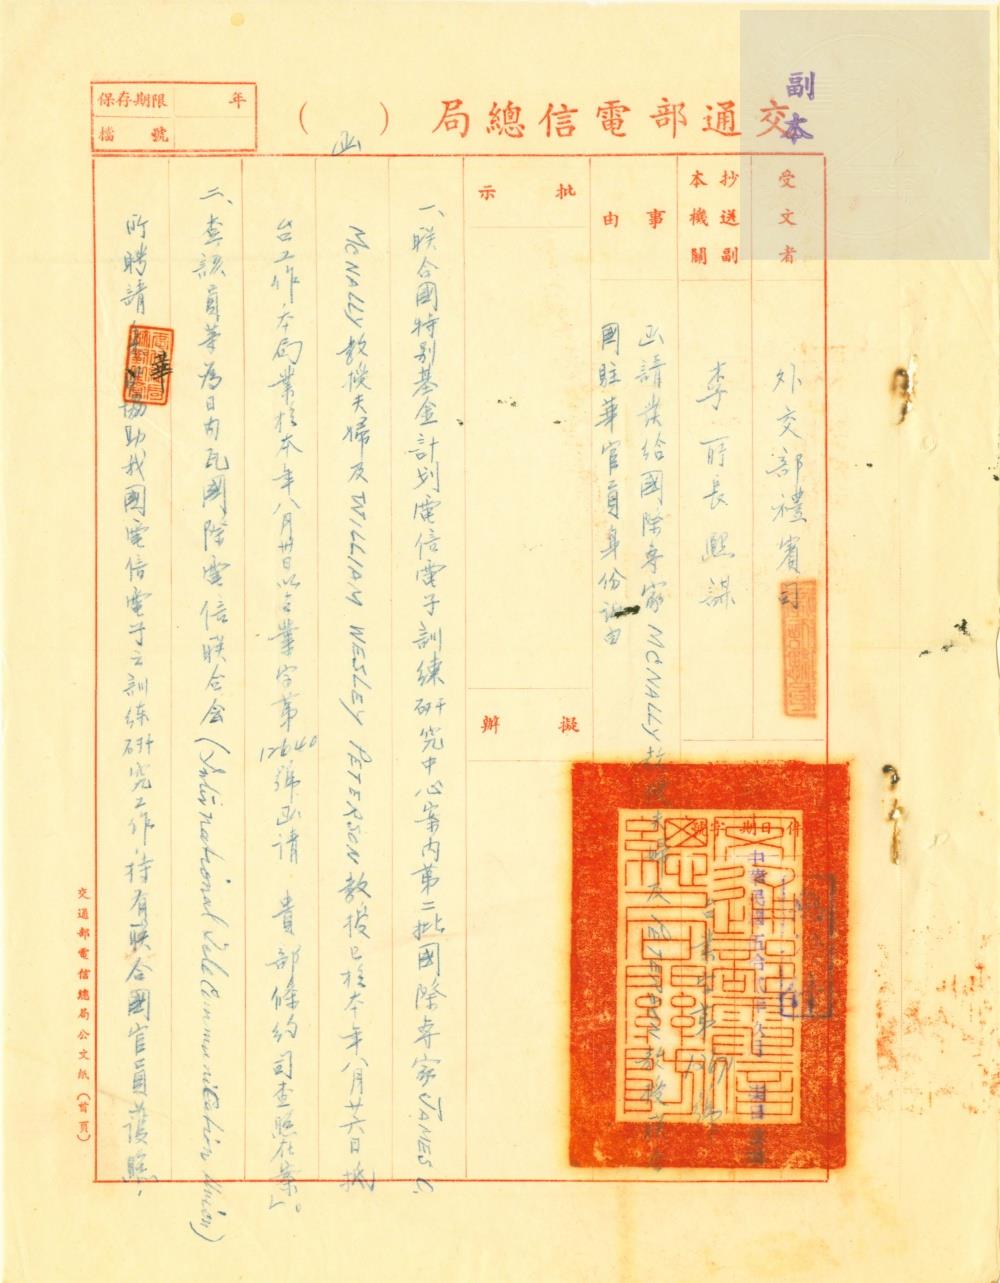 副本
交通部電信總局（函）
保存期限 年
檔號
受文者
外交部禮賓司
抄送副本機關
李所長熙謀
事由
函請發給國際專家MCNALLY教授夫婦及PETERSON教授
國駐華官員身份證由
批示
擬辦
一、聯合國特别基金計划電信電子訓練研究中心案内第二批國際專家JAMES C.
MCNALLY教授夫婦及WILLIAM WESLEY PETERSON教授已於本年八月廿六日抵
台工作，本局業於本年八月卅日以台業字第12640號函請 貴部條約司查照在案。
二、查該員等為日内瓦國際電信联合会(International Telecommunication Union)
所聘請來華協助我國電信電子之訓练研究工作，持有联合國官員護照，
中華民國五
交通部電信總局公文紙（首頁）